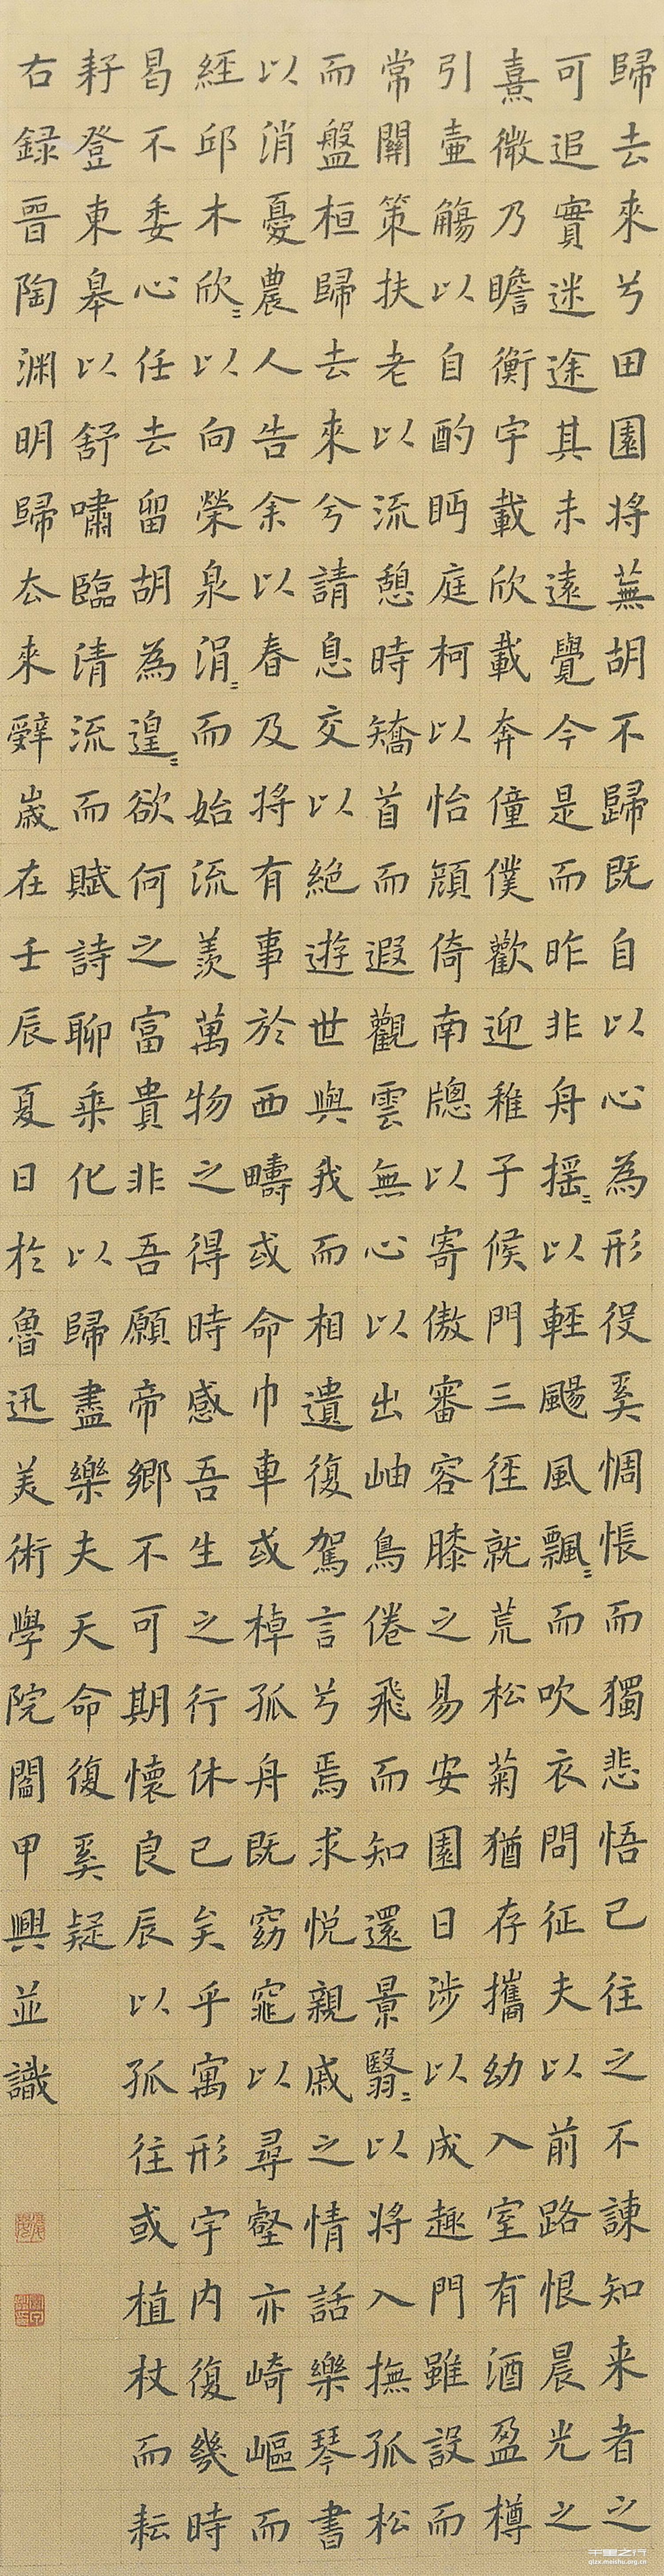 歸去來兮田園将蕪胡不歸既自以心為形役奚惆悵而獨悲悟已往之不諫知来者之
可追實迷途其未遠覺今是而昨非舟揺〻以輕颺風飄〻而吹衣問征夫以前路恨晨光之
熹微乃瞻衡宇載欣載奔僮僕歡迎稚子候門三徑就荒松菊猶存攜幼入室有酒盈樽
引壺觴以自酌眄庭柯以怡顔倚南牕以寄傲審容膝之易安園日涉以成趣門雖設而
常關策扶老以流憩時矯首而遐觀雲無心以出岫鳥倦飛而知還景翳〻以将入撫孤松
而盤桓歸去來兮請息交以絶遊世與我而相遺復駕言兮焉求悦親戚之情話樂琴書
以消憂農人告余以春及将有事於西疇或命巾車或棹孤舟既窈窕以尋壑亦崎嶇而
經邱木欣〻以向榮泉涓〻而始流羨萬物之得時感吾生之行休已矣乎寓形宇内復幾時
曷不委心任去留胡為遑〻欲何之富貴非吾願帝鄉不可期懷良辰以孤往或植杖而耘
耔登東皋以舒嘯臨清流而賦詩聊乘化以歸盡樂夫天命復奚疑
右録晉陶渊明歸去来辭歲在壬辰夏日於魯迅美術學院闔甲興並識
千里之行
qlzx.meishu.org.cn